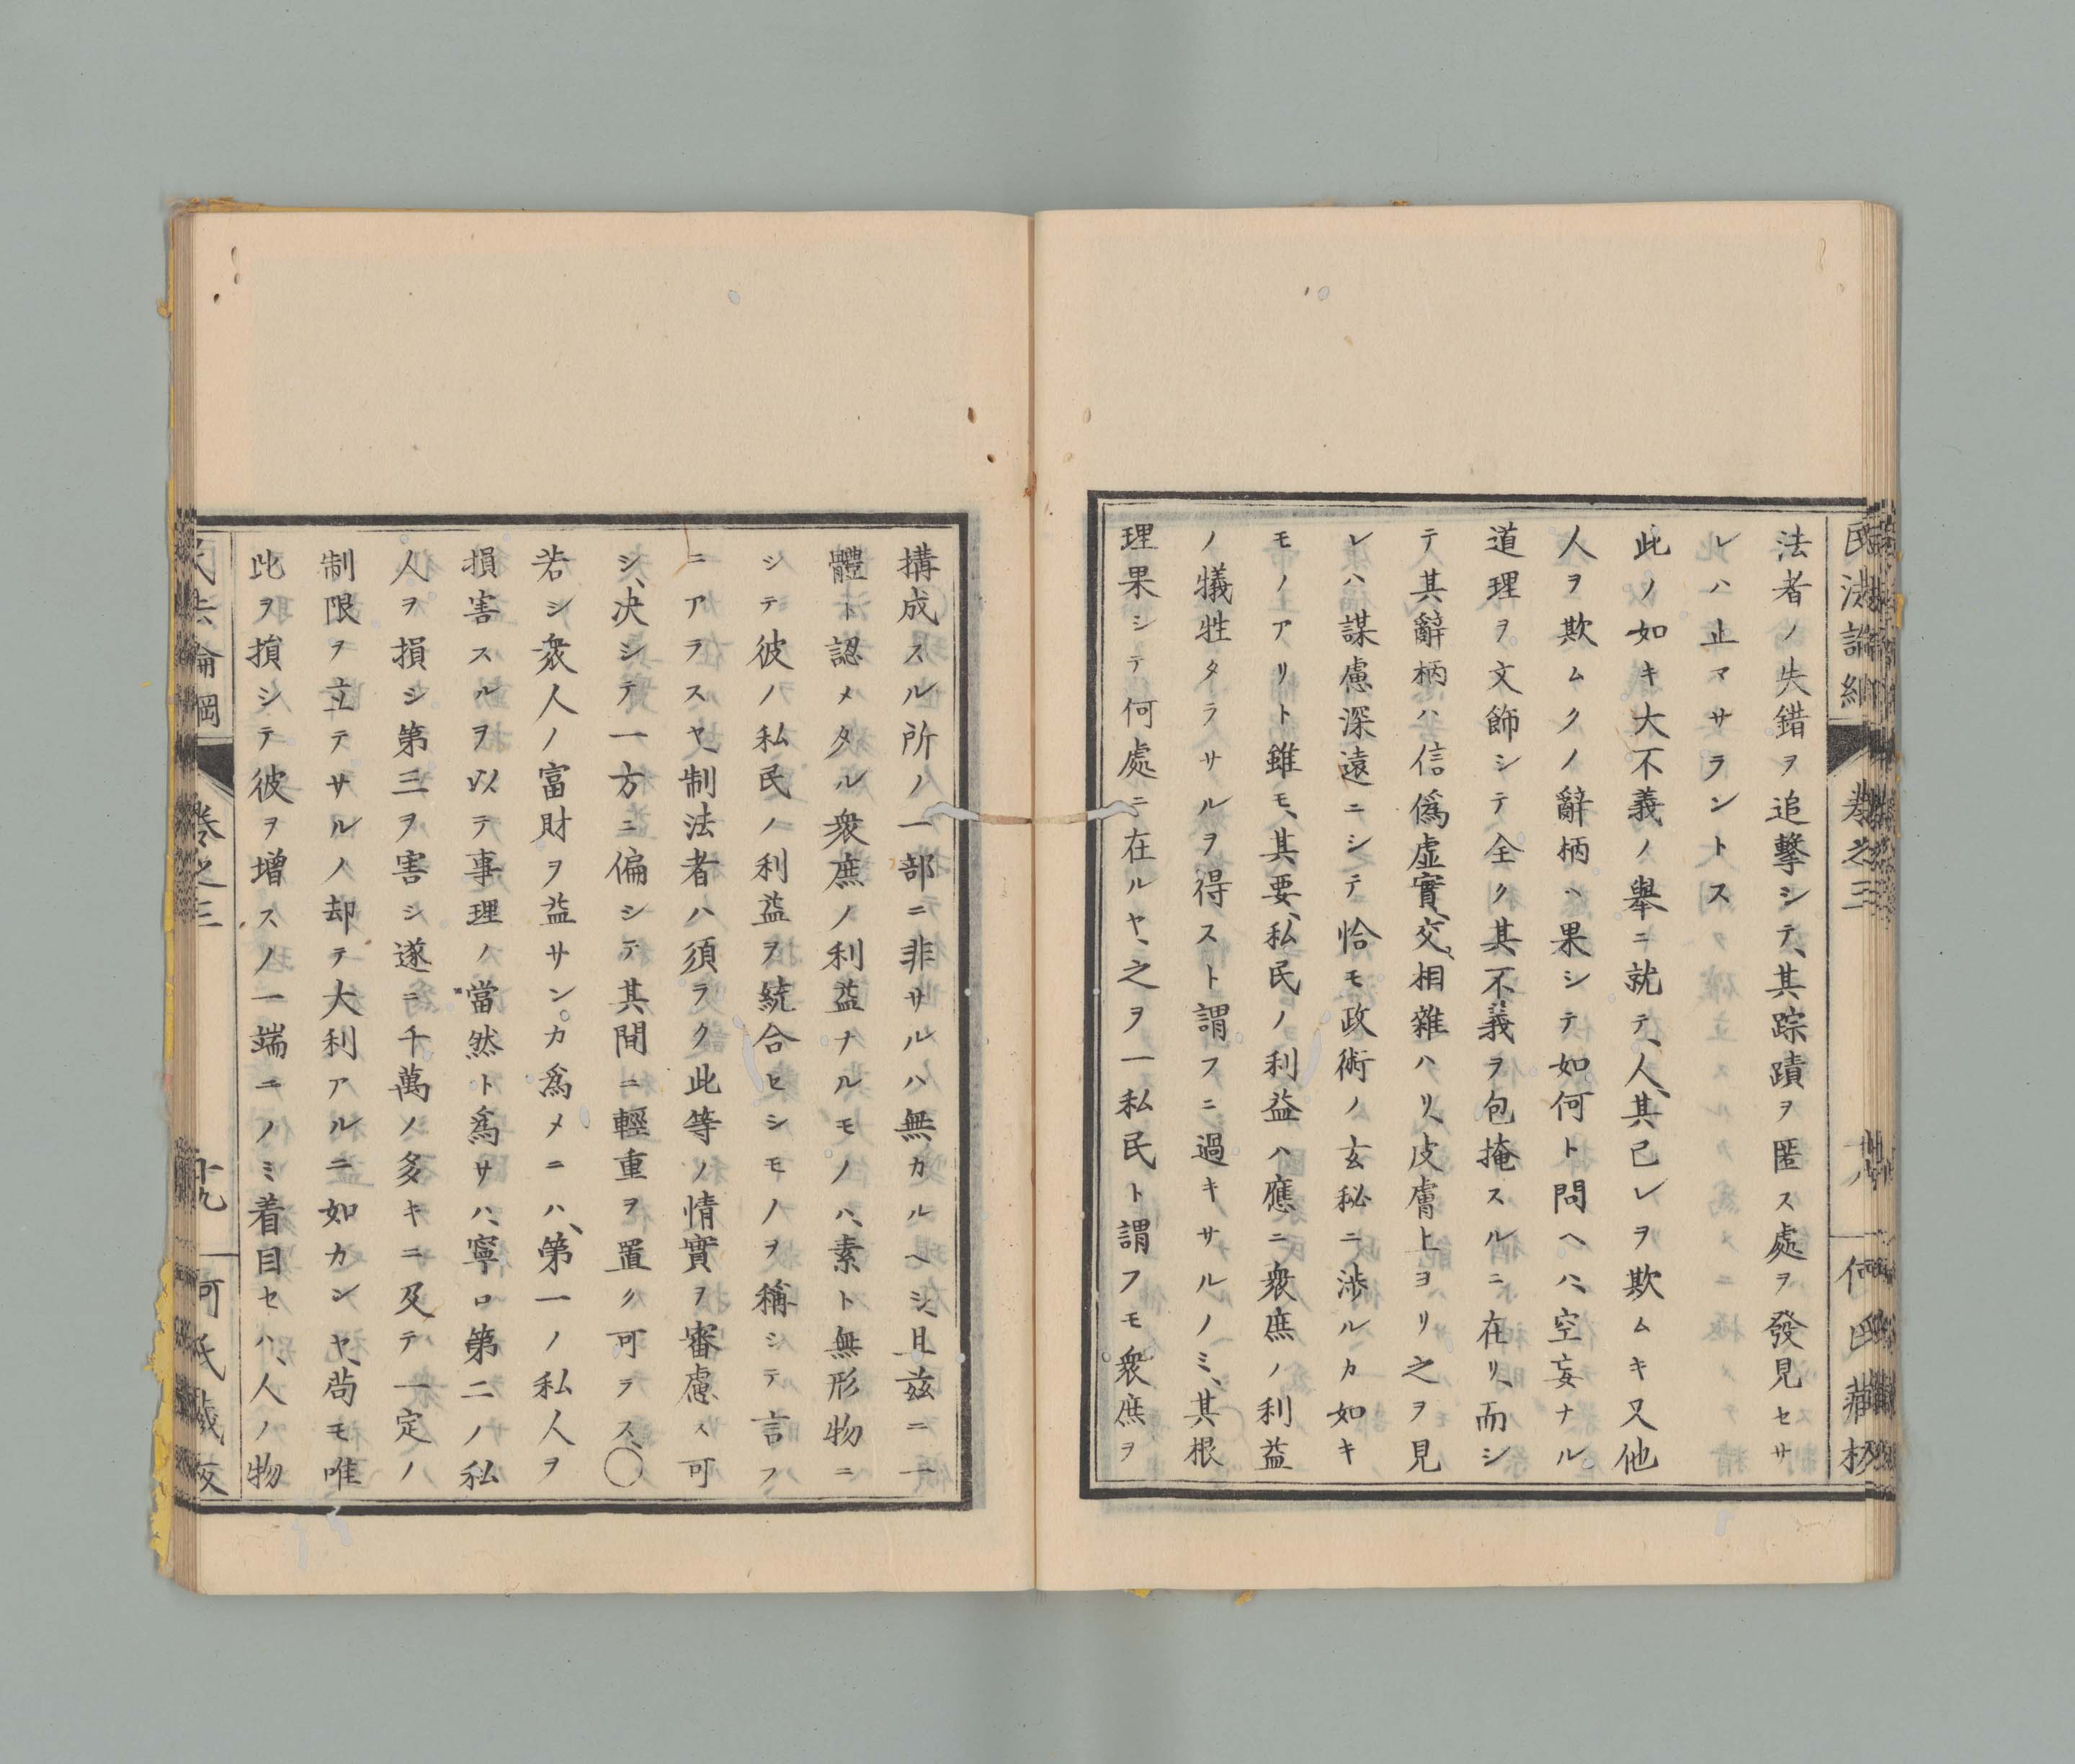 法者ノ失錯ヲ追擊シテ、其踪蹟ヲ匿ス處ヲ發見セサ
レハ止マサラントス
此ノ如キ大不義ノ舉ニ就テ、人、其己レヲ欺ムキ又他
人ヲ欺ムクノ辭柄ハ果シテ如何ト問ヘハ、空妄ナル
道理ヲ文飾シテ全ク其不義ヲ包掩スルニ在リ、而シ
テ其辭柄ハ信僞虛實、交、相雜ハリ、皮膚上ヨリ之ヲ見
レハ謀慮深遠ニシテ恰モ政術ノ玄秘ニ渉ルカ如キ
モノアリト雖モ、其要、私民ノ利益ハ應ニ衆庶ノ利益
ノ犧牲タラサルヲ得スト謂フニ過キサルノミ、其根
理果シテ何處ニ在ルヤ、之ヲ一私民ト謂フモ衆庶ヲ
構成スル所ノ一部ニ非サルハ無カルヘシ、且玆ニ一
體ト認メタル衆庶ノ利益ナルモノハ、素ト無形物ニ
シテ彼ノ私民ノ利益ヲ統合セシモノヲ稱シテ言フ、
ニアラスヤ、制法者ハ須ラク此等ノ情實ヲ審慮ス可
シ、决シテ一方ニ偏シテ其間ニ輕重ヲ置ク可ラス、〇
若シ衆人ノ富財ヲ益サンカ爲メニハ、第一ノ私人ヲ
損害スルヲ以テ事理ノ當然ト爲サハ、寧ロ第二ノ私
人ヲ損シ第三ヲ害シ遂ニ千萬ノ多キニ及テ一定ノ
制限ヲ立テサルノ却テ大利アルニ如カンヤ、尚モ唯
此ヲ損シテ彼ヲ增スノ一端ニノミ着目セハ、人ノ物
卷之三
十九